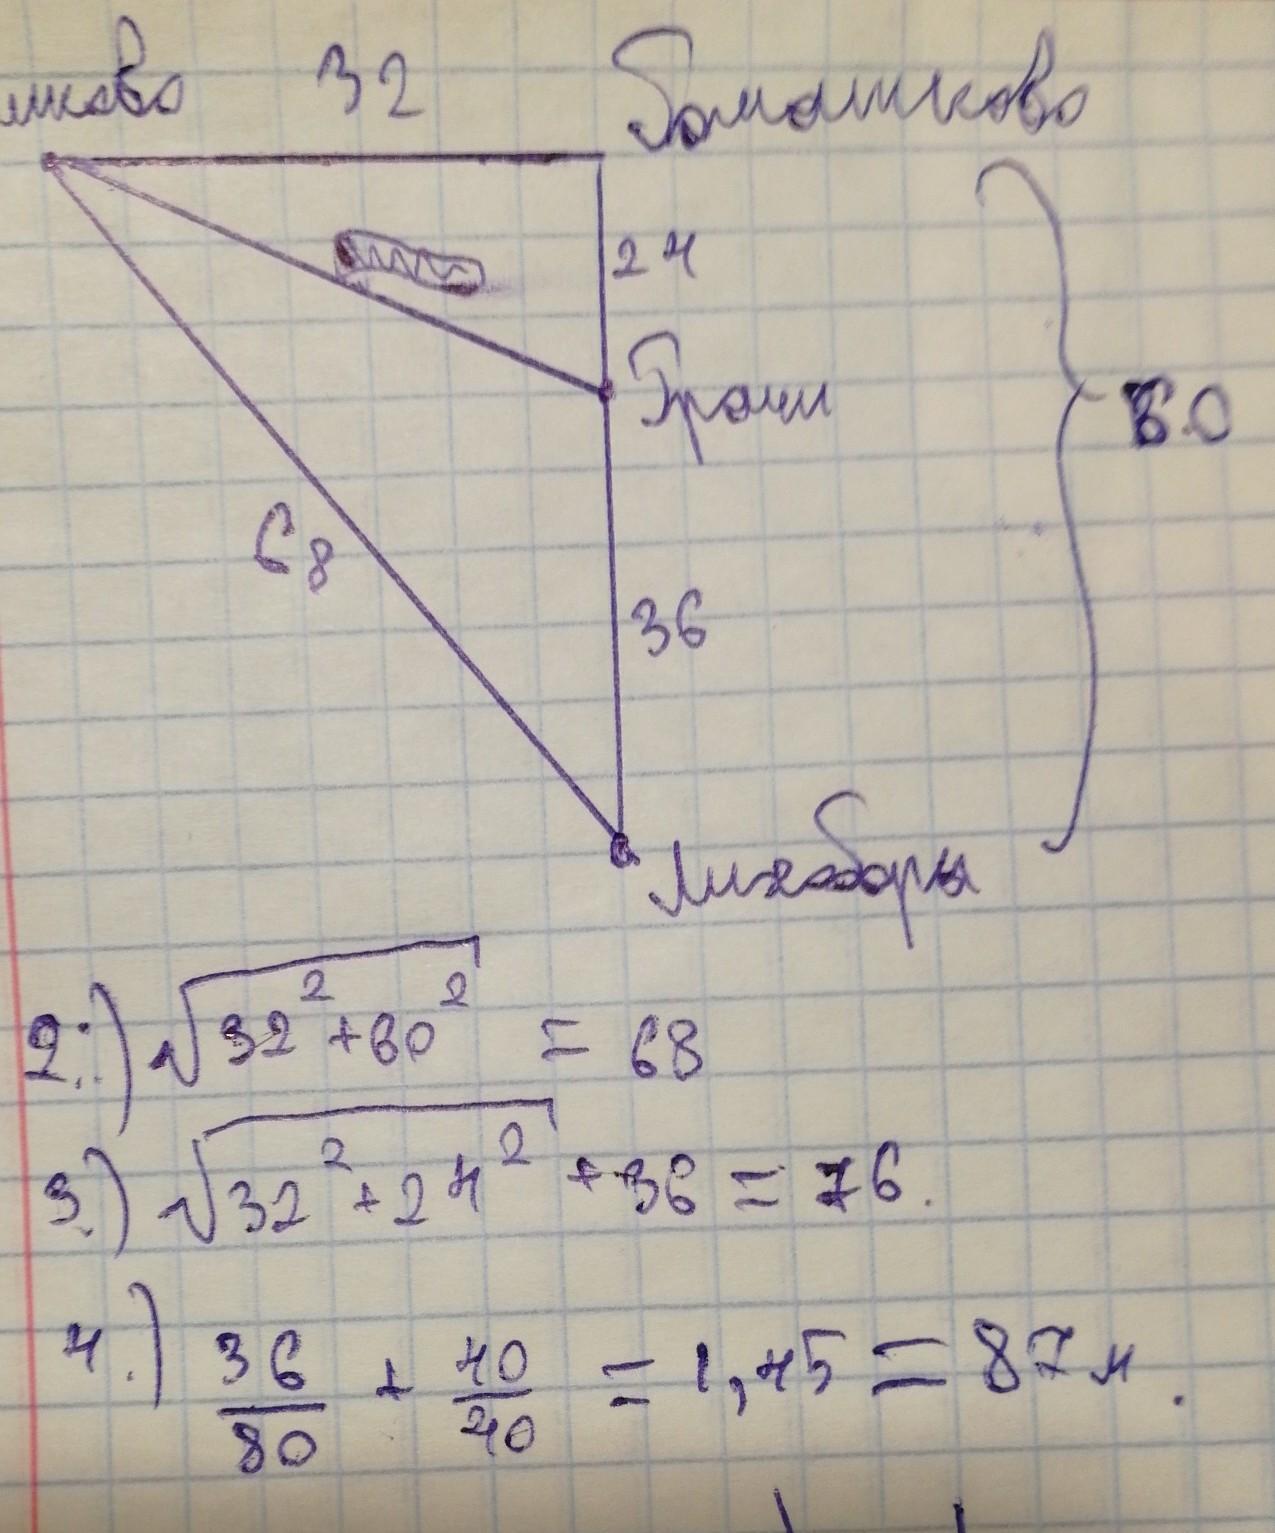 32 Ромашково
24
Грачи
60
68
36
Лихоборы
2.) √32²+60² = 68
3.) √32²+24² + 36 = 76.
4.) 36/80 + 40/40 = 1,45 = 87 м.